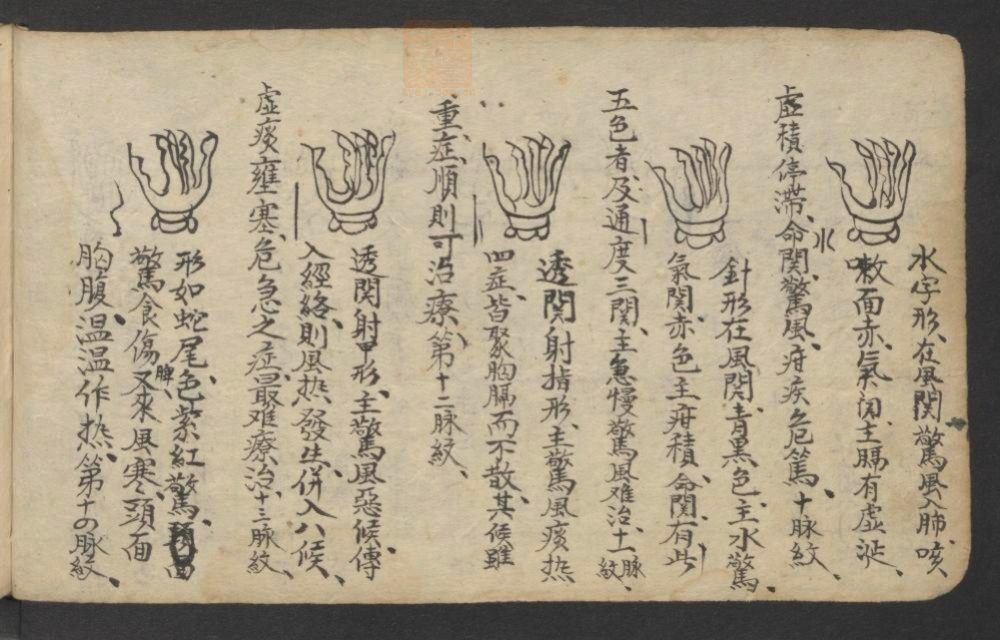 水字形、在風関、驚風入肺、咳
嗽面赤、氣関、主膈有虚涎、
虚積停滞、命関、驚風、疳疾危篤、十脉紋、
水
針形在風関、青黒色、主水驚、
氣関、赤色主疳積、命関、有此
五色者、及通度三関、主急慢驚風难治、十一脉紋
透関射指形、主驚風痰热
四症、皆聚胸膈而不散、其候雖
重症、順則可治療、第十二脉紋、
透関射甲形、主驚風惡候傳
入經絡、則風热發生、併入八候、
虚痰壅塞、危急之症、最难療治、十三脉紋、
形如蛇尾、色紫紅、驚、
驚食傷脾、又來風寒、頭面
胸腹、温温作热、第十の脉紋、